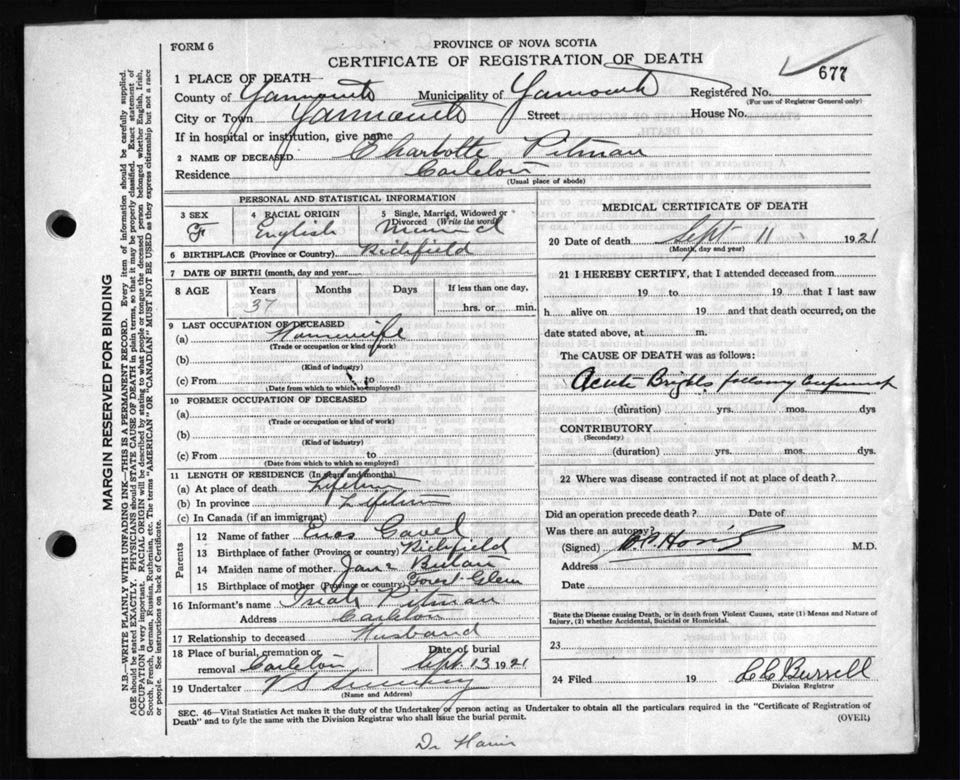 FORM 6
PROVINCE OF NOVA SCOTIA
CERTIFICATE OF REGISTRATION OF DEATH
677
1 PLACE OF DEATH
County of Yarmouth Municipality of Yarmouth Registered No.
(For use of Registrar General only)
City or Town Yarmouth Street House No.
If in hospital or institution, give name
2 NAME OF DECEASED Charlotte Pitman
Residence Carleton
(Usual place of abode)
PERSONAL AND STATISTICAL INFORMATION
3 SEX F
4 RACIAL ORIGIN English
5 Single, Married, Widowed or Divorced (Write the word) Married
6 BIRTHPLACE (Province or Country) Richfield
7 DATE OF BIRTH (month, day and year)
8 AGE Years Months Days If less than one day,
37 hrs. or min.
9 LAST OCCUPATION OF DECEASED
(a) Housewife
(Trade or occupation or kind of work)
(b)
(Kind of industry)
(c) From to
(Date from which to which so employed)
10 FORMER OCCUPATION OF DECEASED
(a)
(Trade or occupation or kind of work)
(b)
(Kind of industry)
(c) From to
(Date from which to which so employed)
11 LENGTH OF RESIDENCE (In years and months)
(a) At place of death Lifetime
(b) In province Lifetime
(c) In Canada (if an immigrant)
Parents
12 Name of father Enos Gavel
13 Birthplace of father (Province or country) Richfield
14 Maiden name of mother Jane
15 Birthplace of mother (Province or country) Forest Glen
16 Informant's name Pitman
Address Carleton
17 Relationship to deceased Husband
18 Place of burial, cremation or removal Carleton Date of burial Sept. 13 1921
19 Undertaker V S Sweeney
(Name and Address)
MEDICAL CERTIFICATE OF DEATH
20 Date of death Sept 11 1921
(Month, day and year)
21 I HEREBY CERTIFY, that I attended deceased from
19 to 19 that I last saw
h alive on 19 and that death occurred, on the
date stated above, at m.
The CAUSE OF DEATH was as follows:
Acute Brights following
(duration) yrs. mos. dys
CONTRIBUTORY
(Secondary)
(duration) yrs. mos. dys.
22 Where was disease contracted if not at place of death?
Did an operation precede death? Date of
Was there an autopsy?
(Signed) Harris M.D.
Address
Date
State the Disease causing Death, or in death from Violent Causes, state (1) Means and Nature of
Injury, (2) whether Accidental, Suicidal or Homicidal.
23
24 Filed 19 L C Burrell
Division Registrar
SEC. 46—Vital Statistics Act makes it the duty of the Undertaker or person acting as Undertaker to obtain all the particulars required in the "Certificate of Registration of
Death" and to fyle the same with the Division Registrar who shall issue the burial permit. (OVER)
Dr Harris
MARGIN RESERVED FOR BINDING
N.B.—WRITE PLAINLY WITH UNFADING INK—THIS IS A PERMANENT RECORD. Every item of information should be carefully supplied.
AGE should be stated EXACTLY. PHYSICIANS should STATE CAUSE OF DEATH in plain terms, so that it may be properly classified. Exact statement of
OCCUPATION is very important. RACIAL ORIGIN will be described by stating to what people or tongue the deceased person belonged whether English, Irish,
Scotch, French, German, Russian, Ruthenian, etc. The terms "AMERICAN" OR "CANADIAN" MUST NOT BE USED as they express citizenship but not a race
or people. See instructions on back of Certificate.